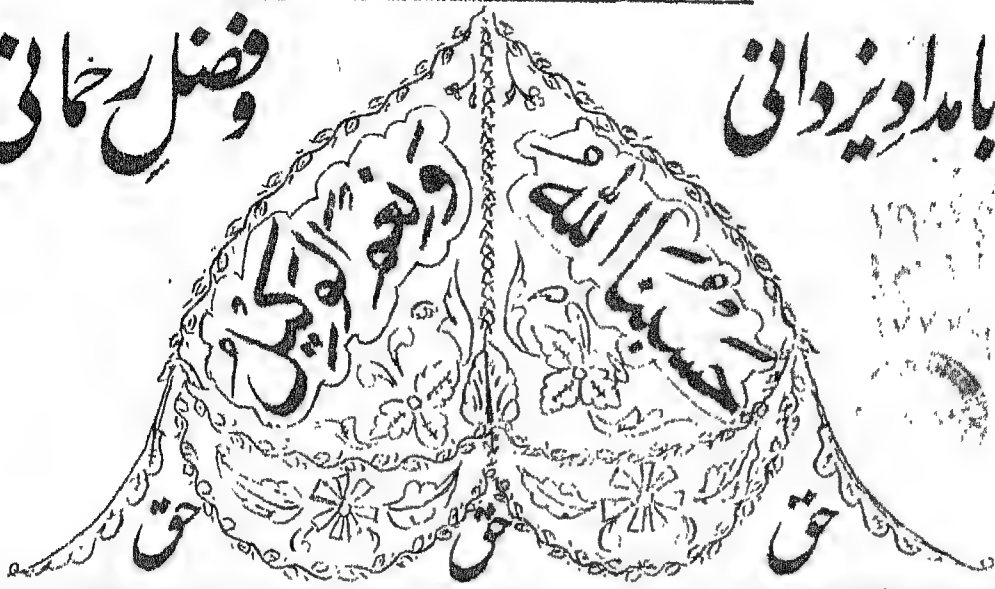 بامدادِ یزدانی
وفضلِ رحمانی
حسبنا الله
ونعم الوکیل
حق
حق
حق